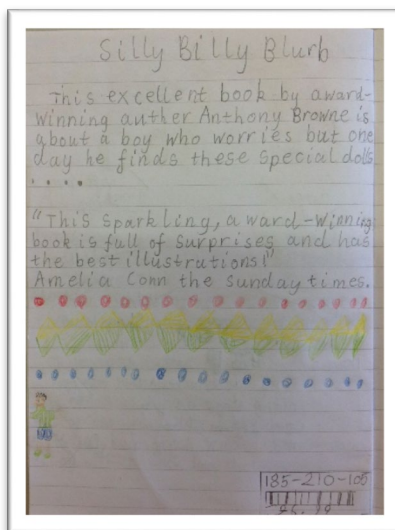 Silly Billy Blurb
This excellent book by award-
winning auther Anthony Browne is
about a boy who worries but one
day he finds these special dolls
....
"This sparkling, award-winning
book is full of surprises and has
the best illustrations!"
Amelia Conn the Sunday times.
185-210-105